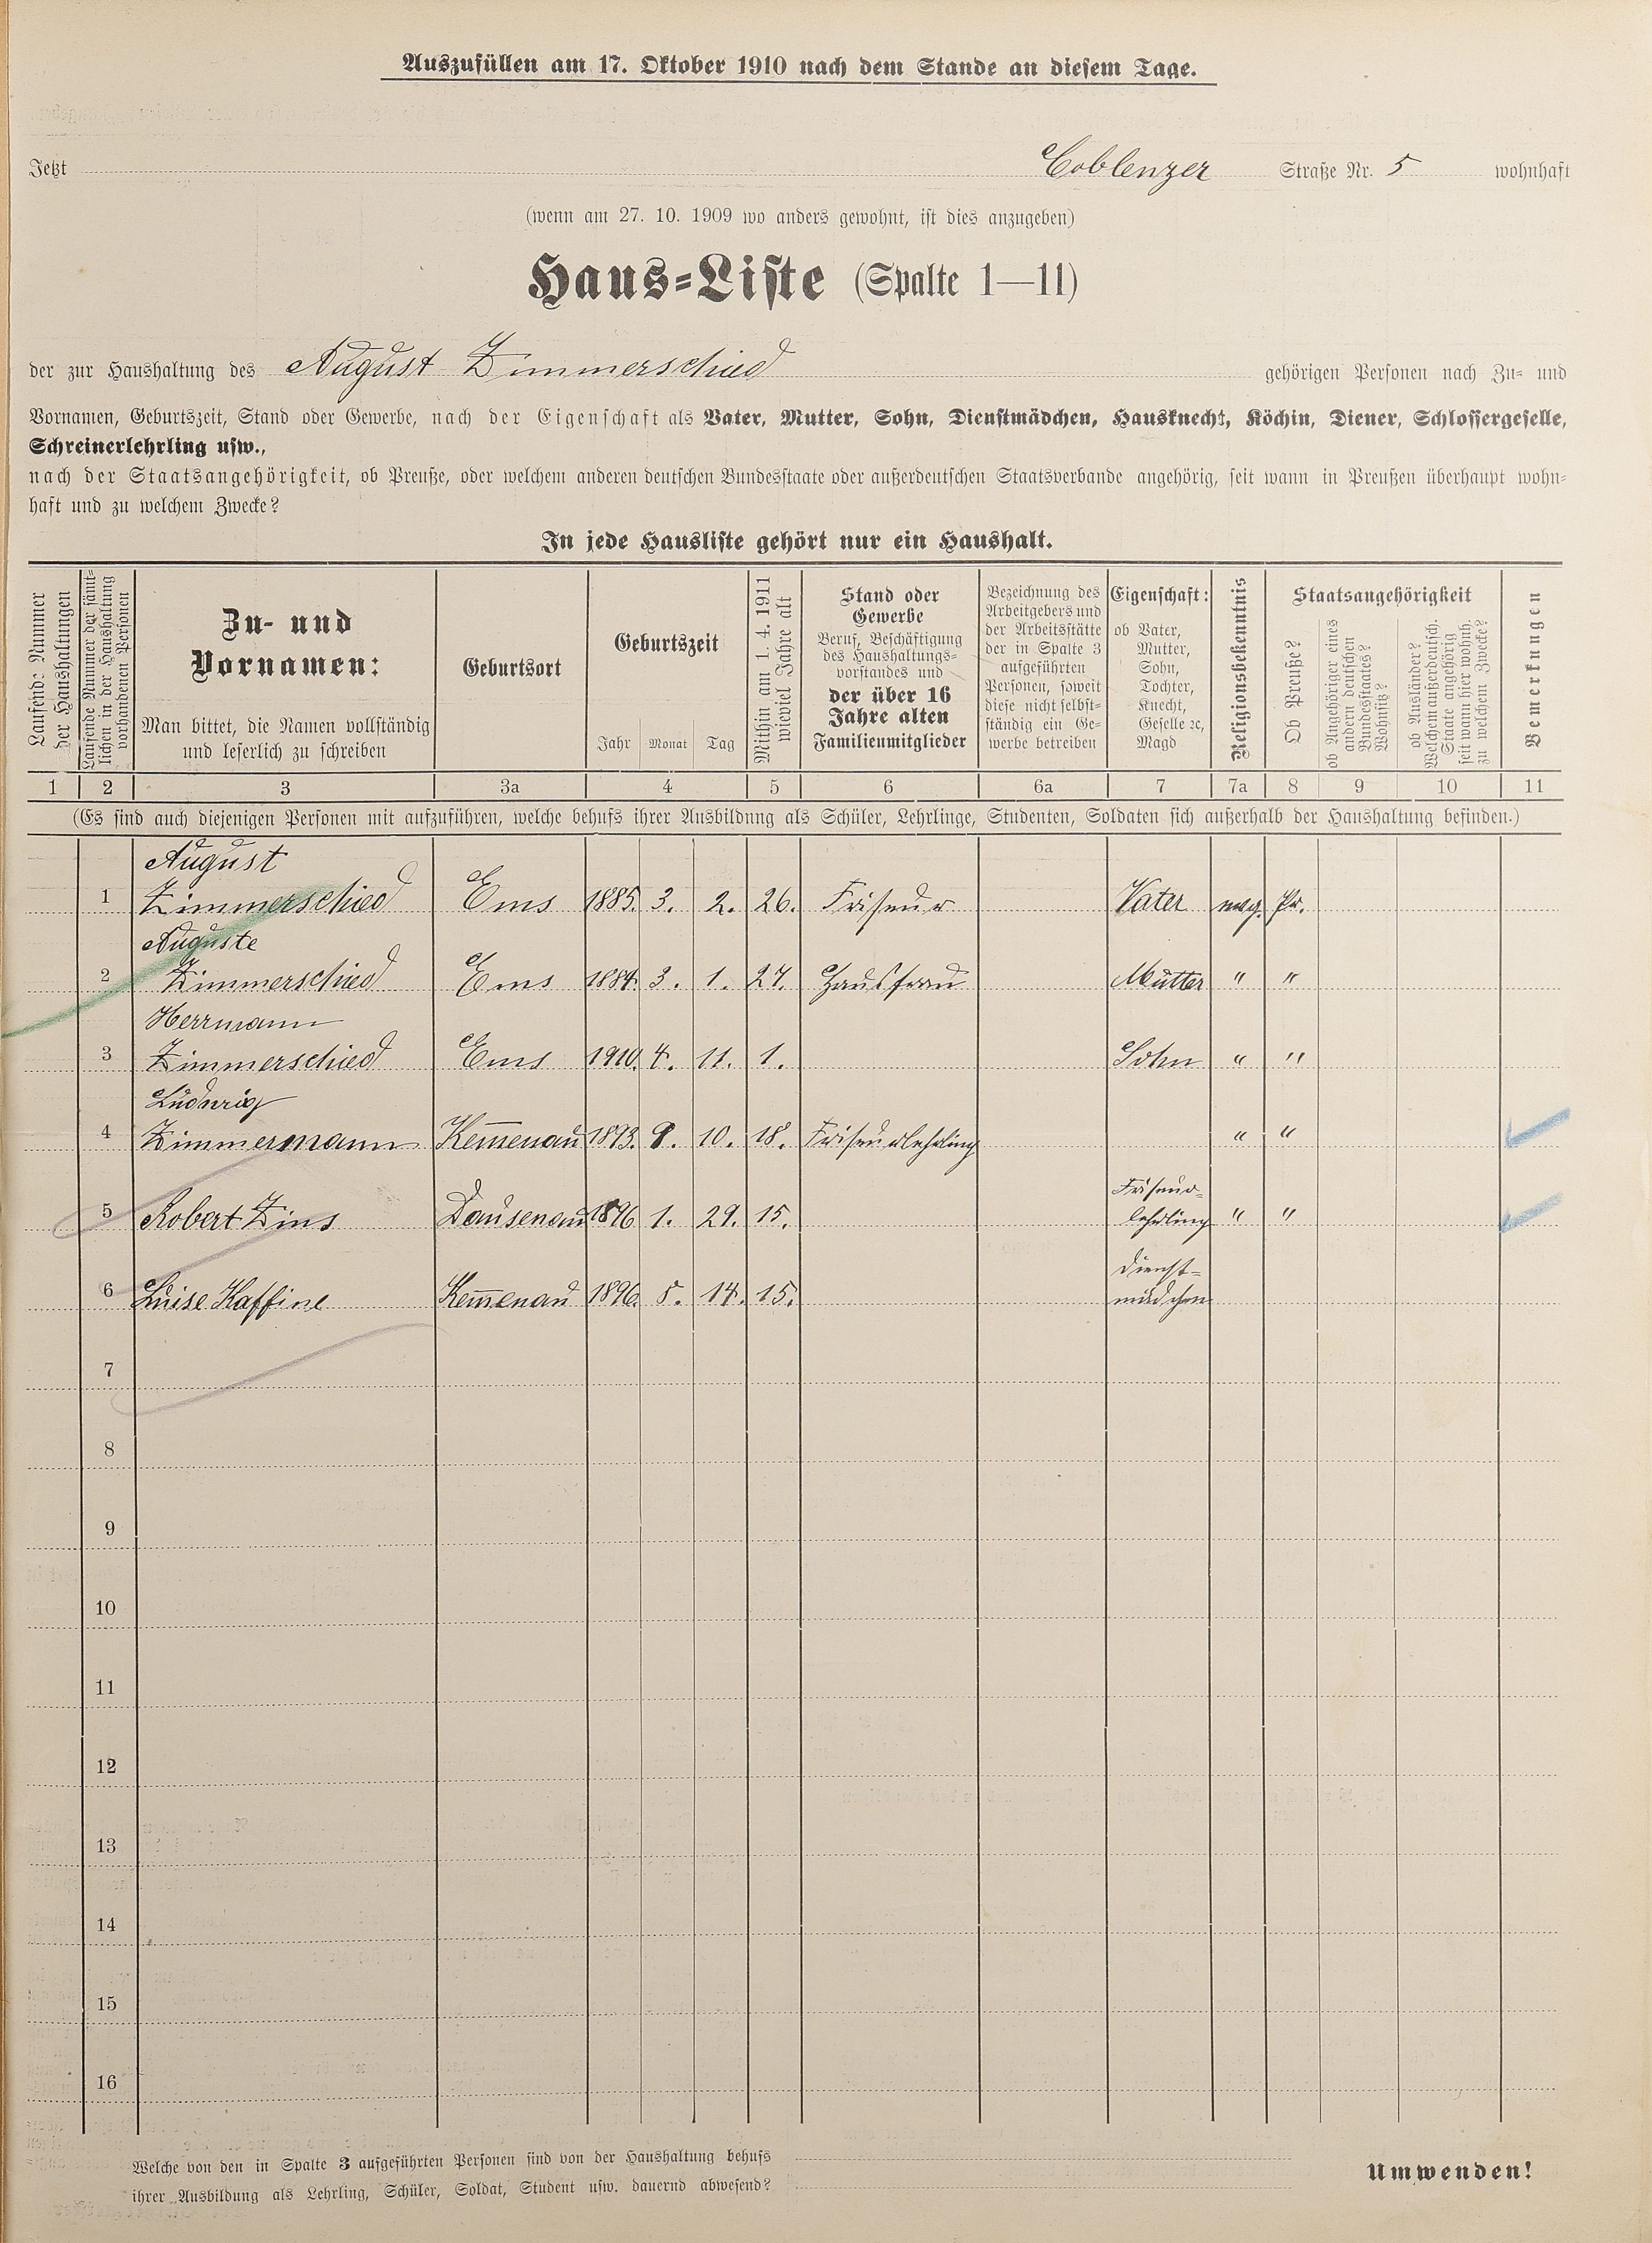 Auszufüllen am 17. Oktober 1910 nach dem Stande an diesem Tage.
Jetzt Coblenzer Straße Nr. 5 wohnhaft
(wenn am 27. 10. 1909 wo anders gewohnt, ist dies anzugeben)
Haus-Liste (Spalte 1—11)
der zur Haushaltung des August Zimmerschied gehörigen Personen nach Zu- und
Vornamen, Geburtszeit, Stand oder Gewerbe, nach der Eigenschaft als Vater, Mutter, Sohn, Dienstmädchen, Hausknecht, Köchin, Diener, Schlossergeselle,
Schreinerlehrling usw.,
nach der Staatsangehörigkeit, ob Preuße, oder welchem anderen deutschen Bundesstaate oder außerdeutschen Staatsverbande angehörig, seit wann in Preußen überhaupt wohn-
haft und zu welchem Zwecke?
In jede Hausliste gehört nur ein Haushalt.
Laufende Nummer
der Haushaltungen
Laufende Nummer der sämt-
lichen in der Haushaltung
vorhandenen Personen
Zu- und
Vornamen:
Man bittet, die Namen vollständig
und leserlich zu schreiben
Geburtsort
Geburtszeit
Jahr Monat Tag
Mithin am 1. 4. 1911
wieviel Jahre alt
Stand oder
Gewerbe
Beruf, Beschäftigung
des Haushaltungs-
vorstandes und
der über 16
Jahre alten
Familienmitglieder
Bezeichnung des
Arbeitgebers und
der Arbeitsstätte
der in Spalte 3
aufgeführten
Personen, soweit
diese nicht selbst-
ständig ein Ge-
werbe betreiben
Eigenschaft:
ob Vater,
Mutter,
Sohn,
Tochter,
Knecht,
Geselle ꝛc,
Magd
Religionsbekenntnis
Staatsangehörigkeit
Ob Preuße?
ob Angehöriger eines
andern deutschen
Bundesstaates?
Wohnsitz?
ob Ausländer?
Welchem außerdeutsch.
Staate angehörig
seit wann hier wohnh.
zu welchem Zwecke?
Bemerkungen
1 2 3 3a 4 5 6 6a 7 7a 8 9 10 11
(Es sind auch diejenigen Personen mit aufzuführen, welche behufs ihrer Ausbildung als Schüler, Lehrlinge, Studenten, Soldaten sich außerhalb der Haushaltung befinden.)
August
1 Zimmerschied Ems 1885. 3. 2. 26. Friseur Vater Pr.
Auguste
2 Zimmerschied Ems 1884. 3. 1. 27. Hausfrau Mutter " "
Herrmann
3 Zimmerschied Ems 1910. 4. 11. 1. Sohn " "
Ludwig
4 Zimmermann Kem̅enau 1893. 9. 10. 18. Friseurlehrling " "
Friseur-
5 Robert Zins Dausenau 1896 1. 29. 15. lehrling " "
Dienst-
6 Luise Kaffine Kem̅enau 1896. 5. 14. 15. mädchen
7
8
9
10
11
12
13
14
15
16
Welche von den in Spalte 3 aufgeführten Personen sind von der Haushaltung behufs
ihrer Ausbildung als Lehrling, Schüler, Soldat, Student usw. dauernd abwesend?
Umwenden!